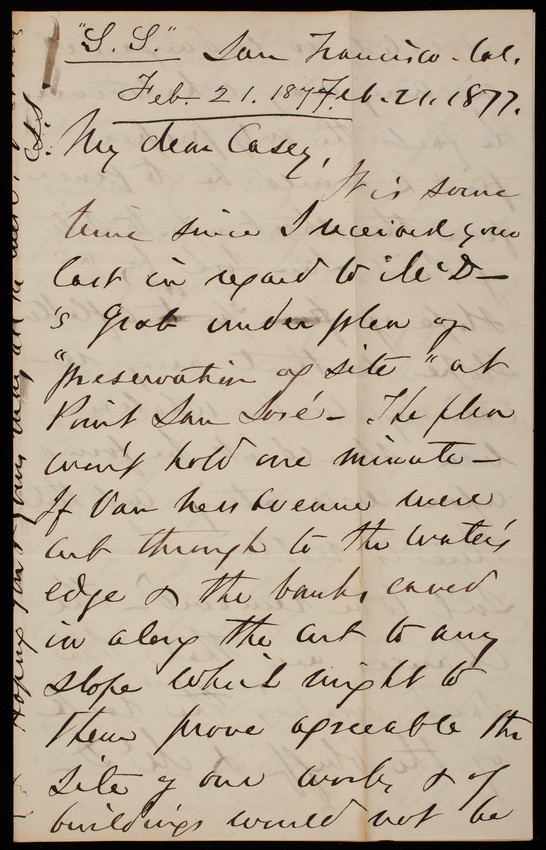 "S. S." San Francisco. Cal.
Feb. 21. 1877. Feb. 21. 1877.
My dear Casey,
It is some
time since I received your
last in regard to McD—
's grab under plea of
"preservation of site" at
Point San José — The plea
won't hold one minute —
If Van Ness Avenue were
cut through to the water's
edge & the banks caved
in along the cut to any
slope which might to
them prove agreeable the
site of our works & of
buildings would not be
Hoping that you are all